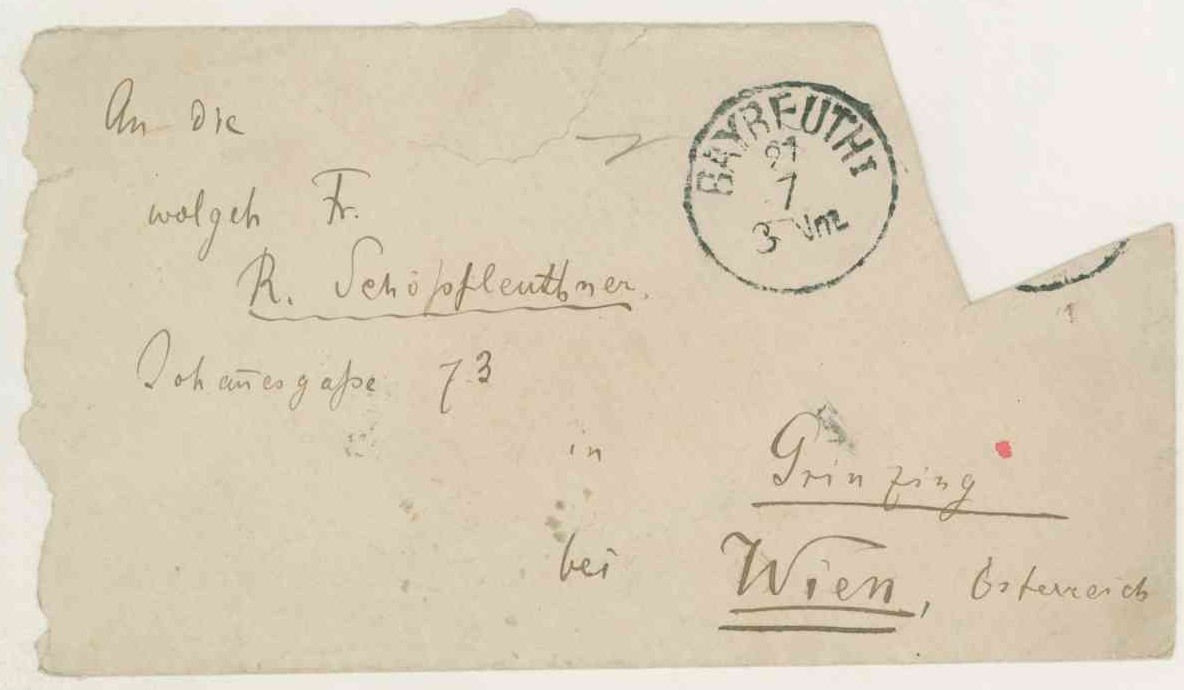 An die
wolgeb Fr.
R. Schöpfleuthner.
Johan̄esgaße 73
in Grinzing
bei Wien, Österreich
BAYREUTH I
7
3 Nm